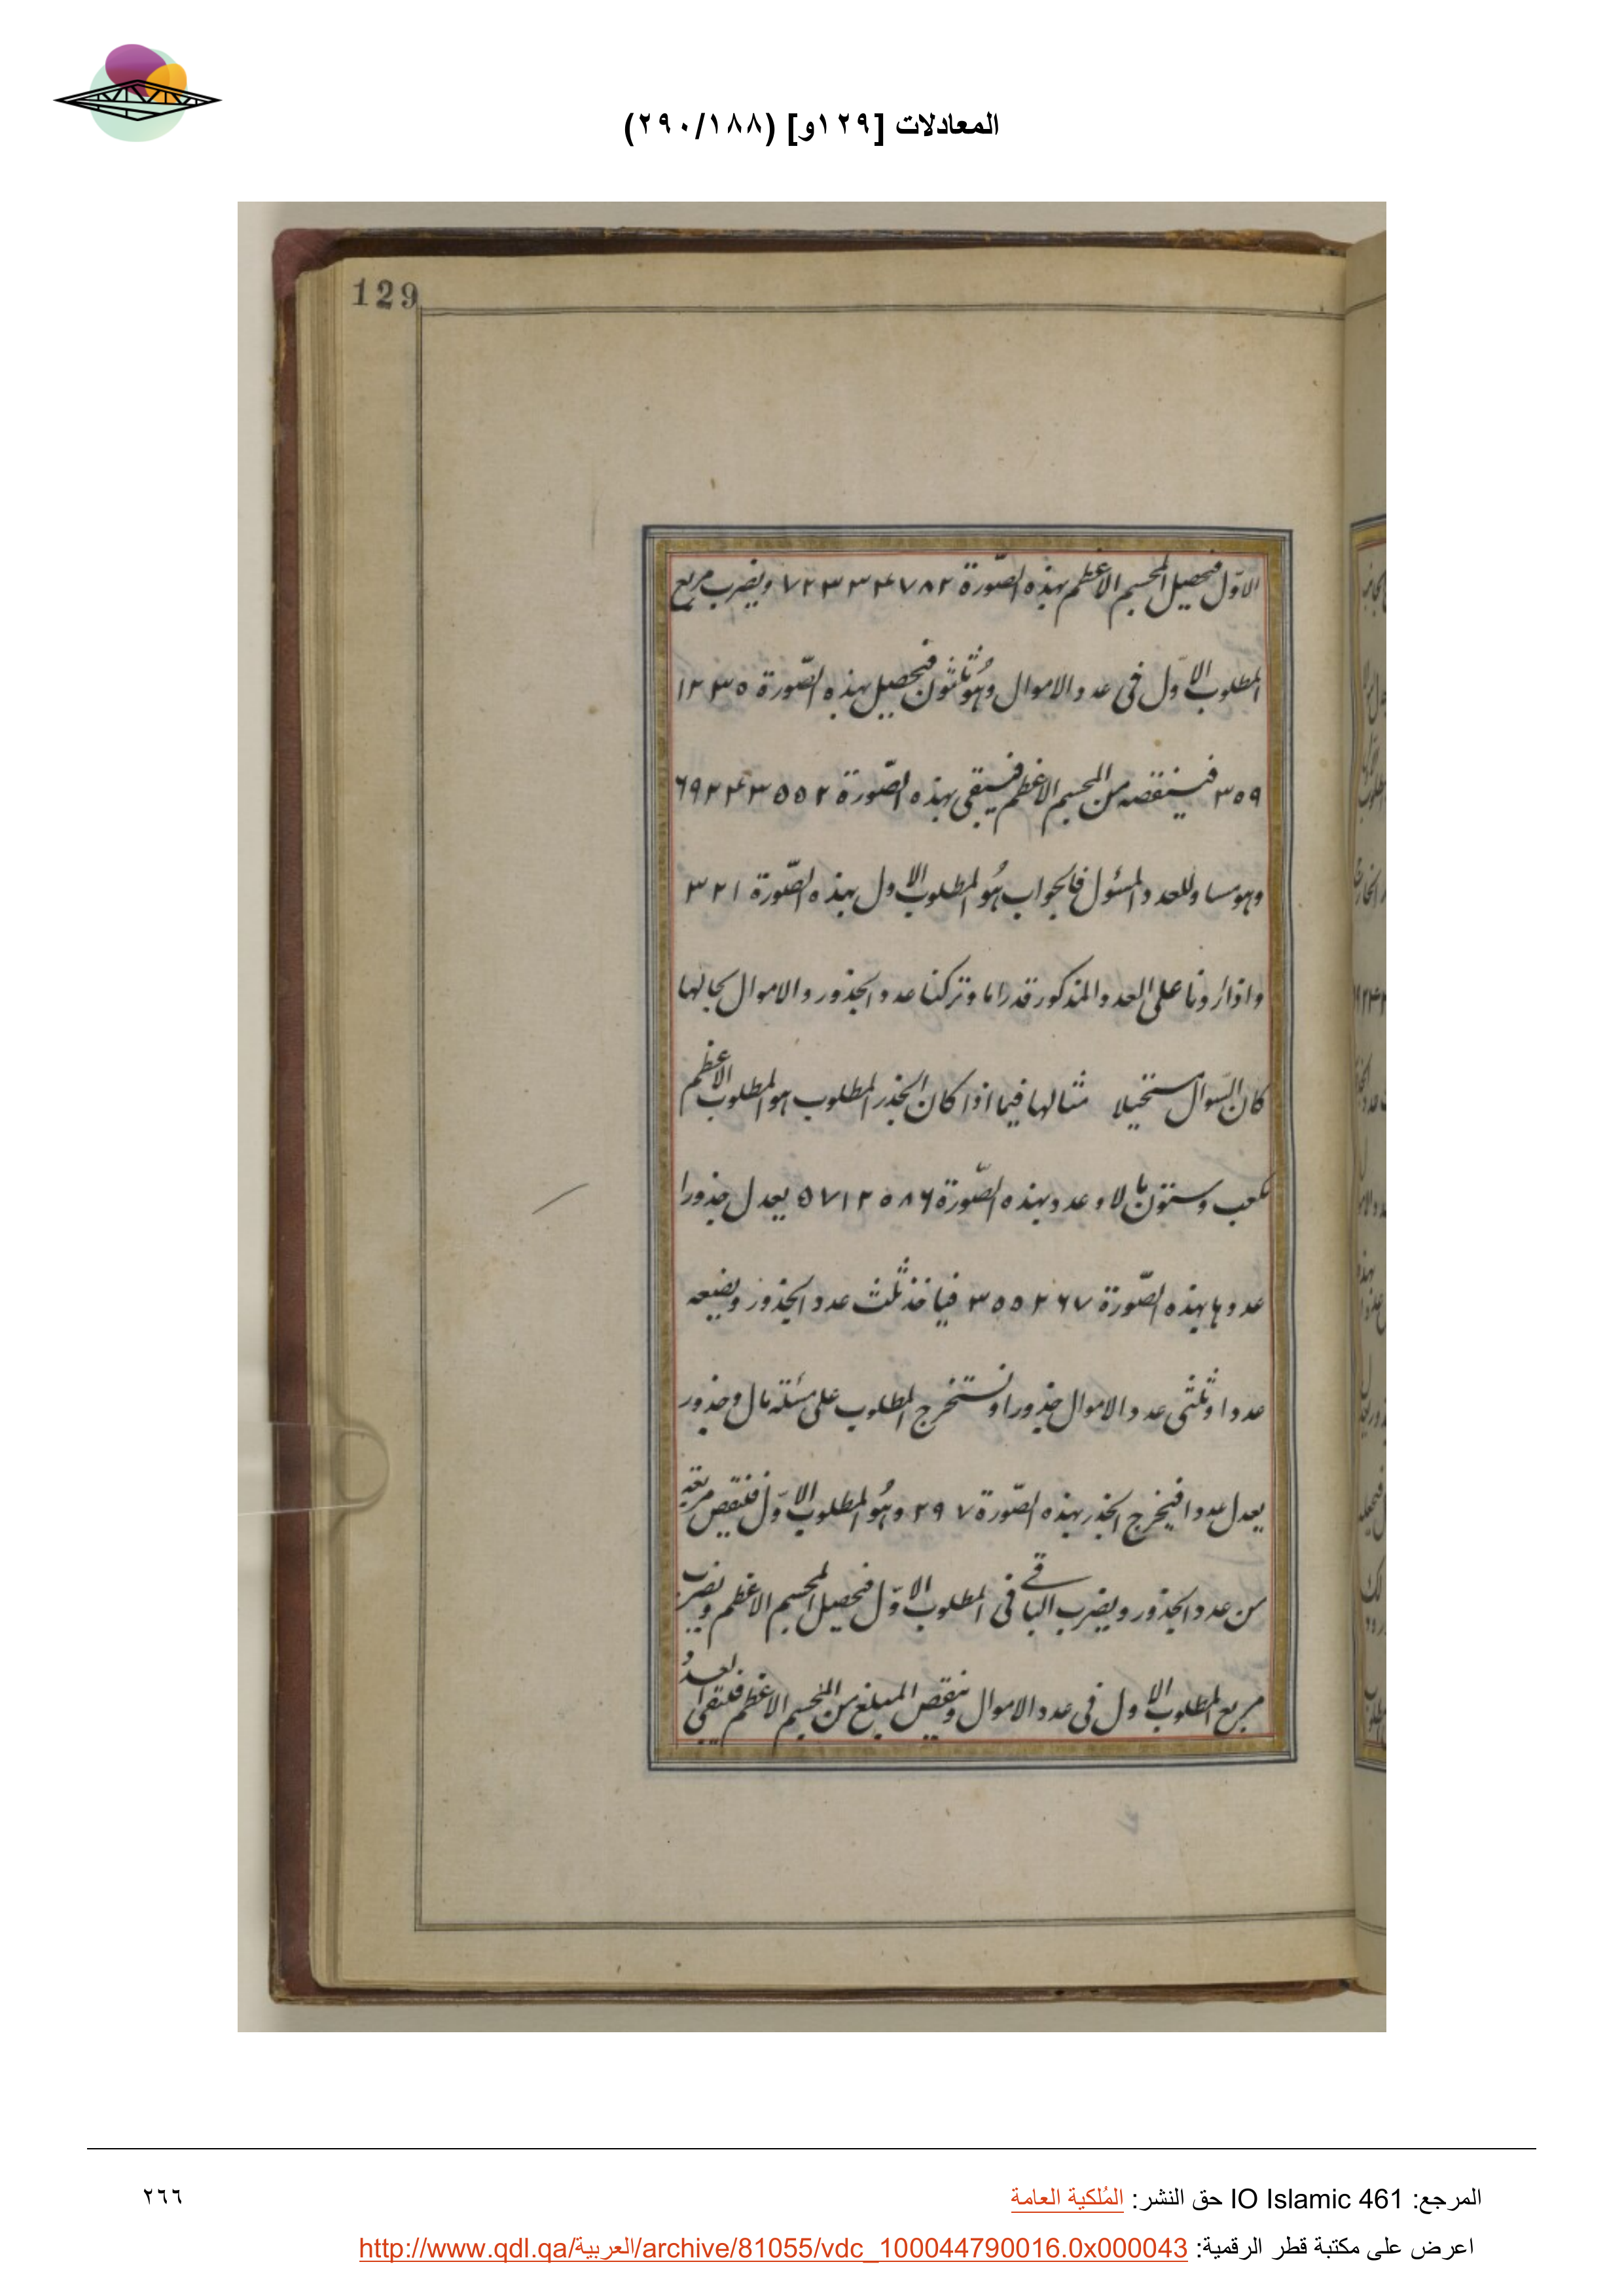 المعادلات [١٢٩و] (٢٩٠/١٨٨)
129
الاوّل فيحصل المجسم الاعظم بهذه الصّورة ٧٢٣٣٤٧٨٢ ويضرب مربع
المطلوب الاوّل فى عدد الاموال وهُو ثلثون فيحصل بهذه الصّورة ١٢٣٥
٣٥٩ فينقصه من المجسم الاعظم فيبقى بهذه الصّورة ٦٩٢٤٣٥٥٢
وهو مساو للعدد المسئول فالجواب هُو المطلوب الاول بهذه الصّورة ٣٢١
واذا زدنا على العدد المذكور قدرا ما وتركنا عدد الجذور والاموال بحالها
كان السّوال مستحيلا مثالها فيما اذا كان الجذر المطلوب هو المطلوب الاعظم
مكعب وستون مالا وعدد بهذه الصّورة ٥٧١٢٥٨٦ يعدل جذورا
عددها بهذه الصّورة ٣٥٥٢٦٧ فياخذ ثلث عدد الجذور ويضعه
عددا وثلثى عدد الاموال جذورا ونستخرج المطلوب على مسئلة مال وجذور
يعدل عددا فيخرج الجذر بهذه الصّورة ٢٩٧ وهُو المطلوب الاوّل فننقص مربعه
من عدد الجذور ويضرب الباقى فى المطلوب الاوّل فيحصل المجسم الاعظم ونضرب
مربع المطلوب الاول فى عدد الاموال وننقص المبلغ من المجسم الاعظم فيبقى العدد
المرجع: IO Islamic 461 حق النشر: المُلكية العامة
٢٦٦
اعرض على مكتبة قطر الرقمية: http://www.qdl.qa/العربية/archive/81055/vdc_100044790016.0x000043